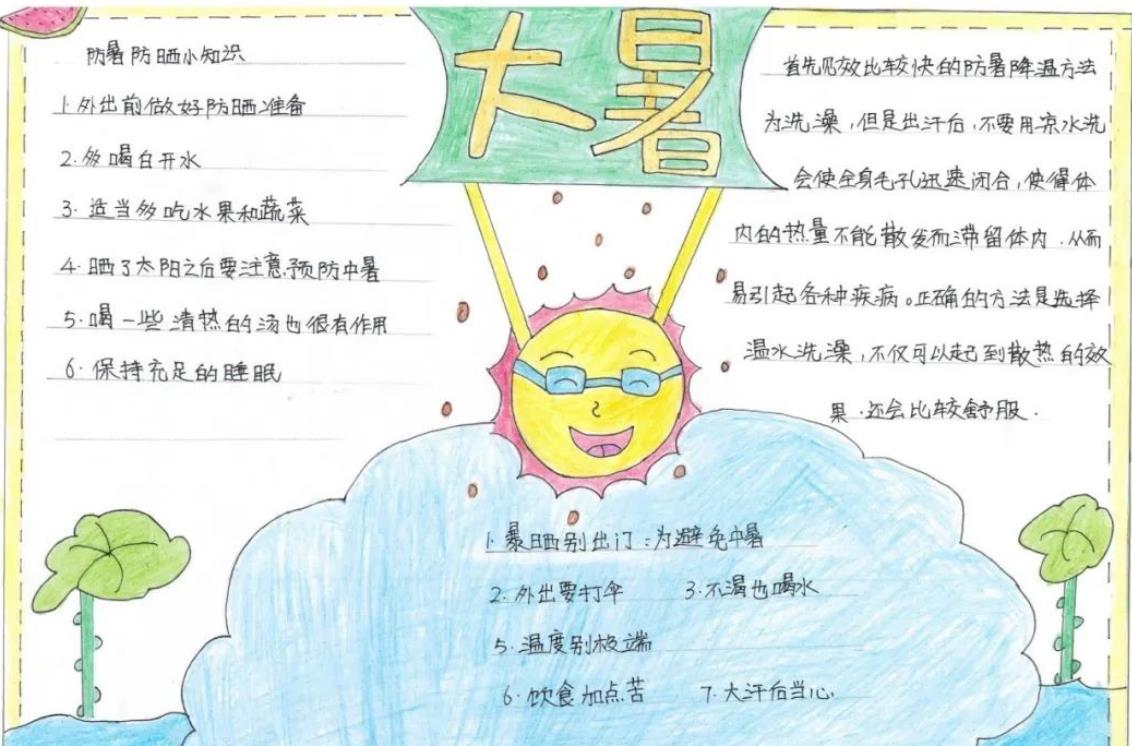 大暑
防暑防晒小知识
1.外出前做好防晒准备
2.多喝白开水
3.适当多吃水果和蔬菜
4.晒了太阳之后要注意预防中暑
5.喝一些清热的汤也很有作用
6.保持充足的睡眠
首先见效比较快的防暑降温方法
为洗澡,但是出汗后,不要用凉水洗
会使全身毛孔迅速闭合,使得体
内的热量不能散发而滞留体内.从而
易引起各种疾病。正确的方法是选择
温水洗澡,不仅可以起到散热的效
果.还会比较舒服.
1.暴晒别出门:为避免中暑
2.外出要打伞 3.不渴也喝水
5.温度别极端
6.饮食加点苦 7.大汗后当心